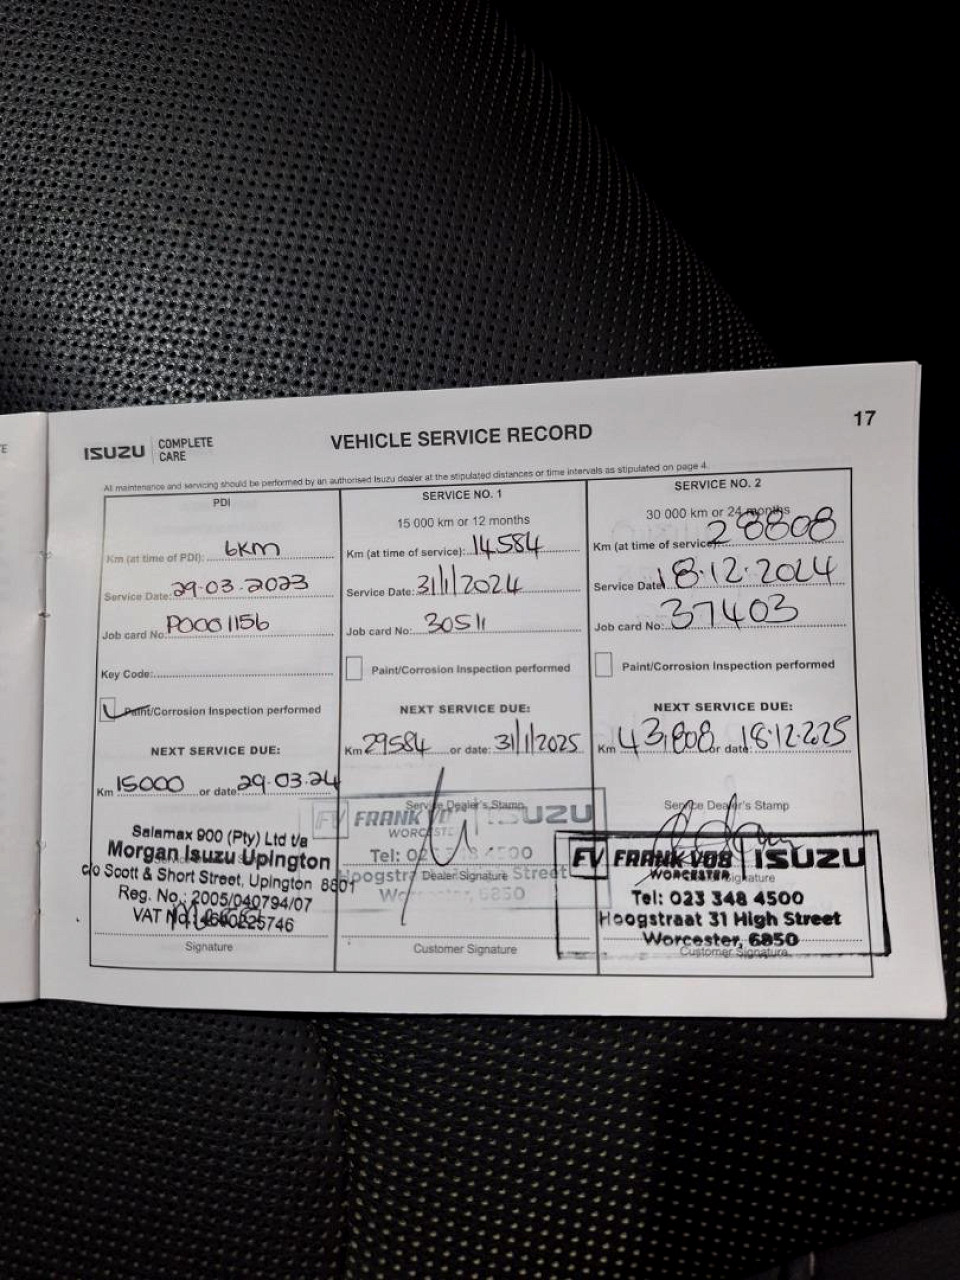 17
ISUZU COMPLETE CARE
VEHICLE SERVICE RECORD
All maintenance and servicing should be performed by an authorised Isuzu dealer at the stipulated distances or time intervals as stipulated on page 4.
PDI
Km (at time of PDI): 6KM
Service Date: 29.03.2023
Job card No: P0001156
Key Code:
Paint/Corrosion Inspection performed
NEXT SERVICE DUE:
Km 15000 or date 29.03.24
Salamax 900 (Pty) Ltd t/a
Morgan Isuzu Upington
c/o Scott & Short Street, Upington 8801
Reg. No.: 2005/040794/07
VAT No
Signature
SERVICE NO. 1
15 000 km or 12 months
Km (at time of service): 14584
Service Date: 31/1/2024
Job card No: 30511
Paint/Corrosion Inspection performed
NEXT SERVICE DUE:
Km 29584 or date: 31/1/2025
Service Dealer's Stamp
FV FRANK ISUZU
Dealer Signature Street
6850
Customer Signature
SERVICE NO. 2
30 000 km or 24 months
Km (at time of service): 28808
Service Date: 18.12.2024
Job card No: 37403
Paint/Corrosion Inspection performed
NEXT SERVICE DUE:
Km 43,808 or date: 18.12.2025
Service Dealer's Stamp
FV FRANK VOS ISUZU
WORCESTER
Tel: 023 348 4500
Hoogstraat 31 High Street
Worcester, 6850
Customer Signature